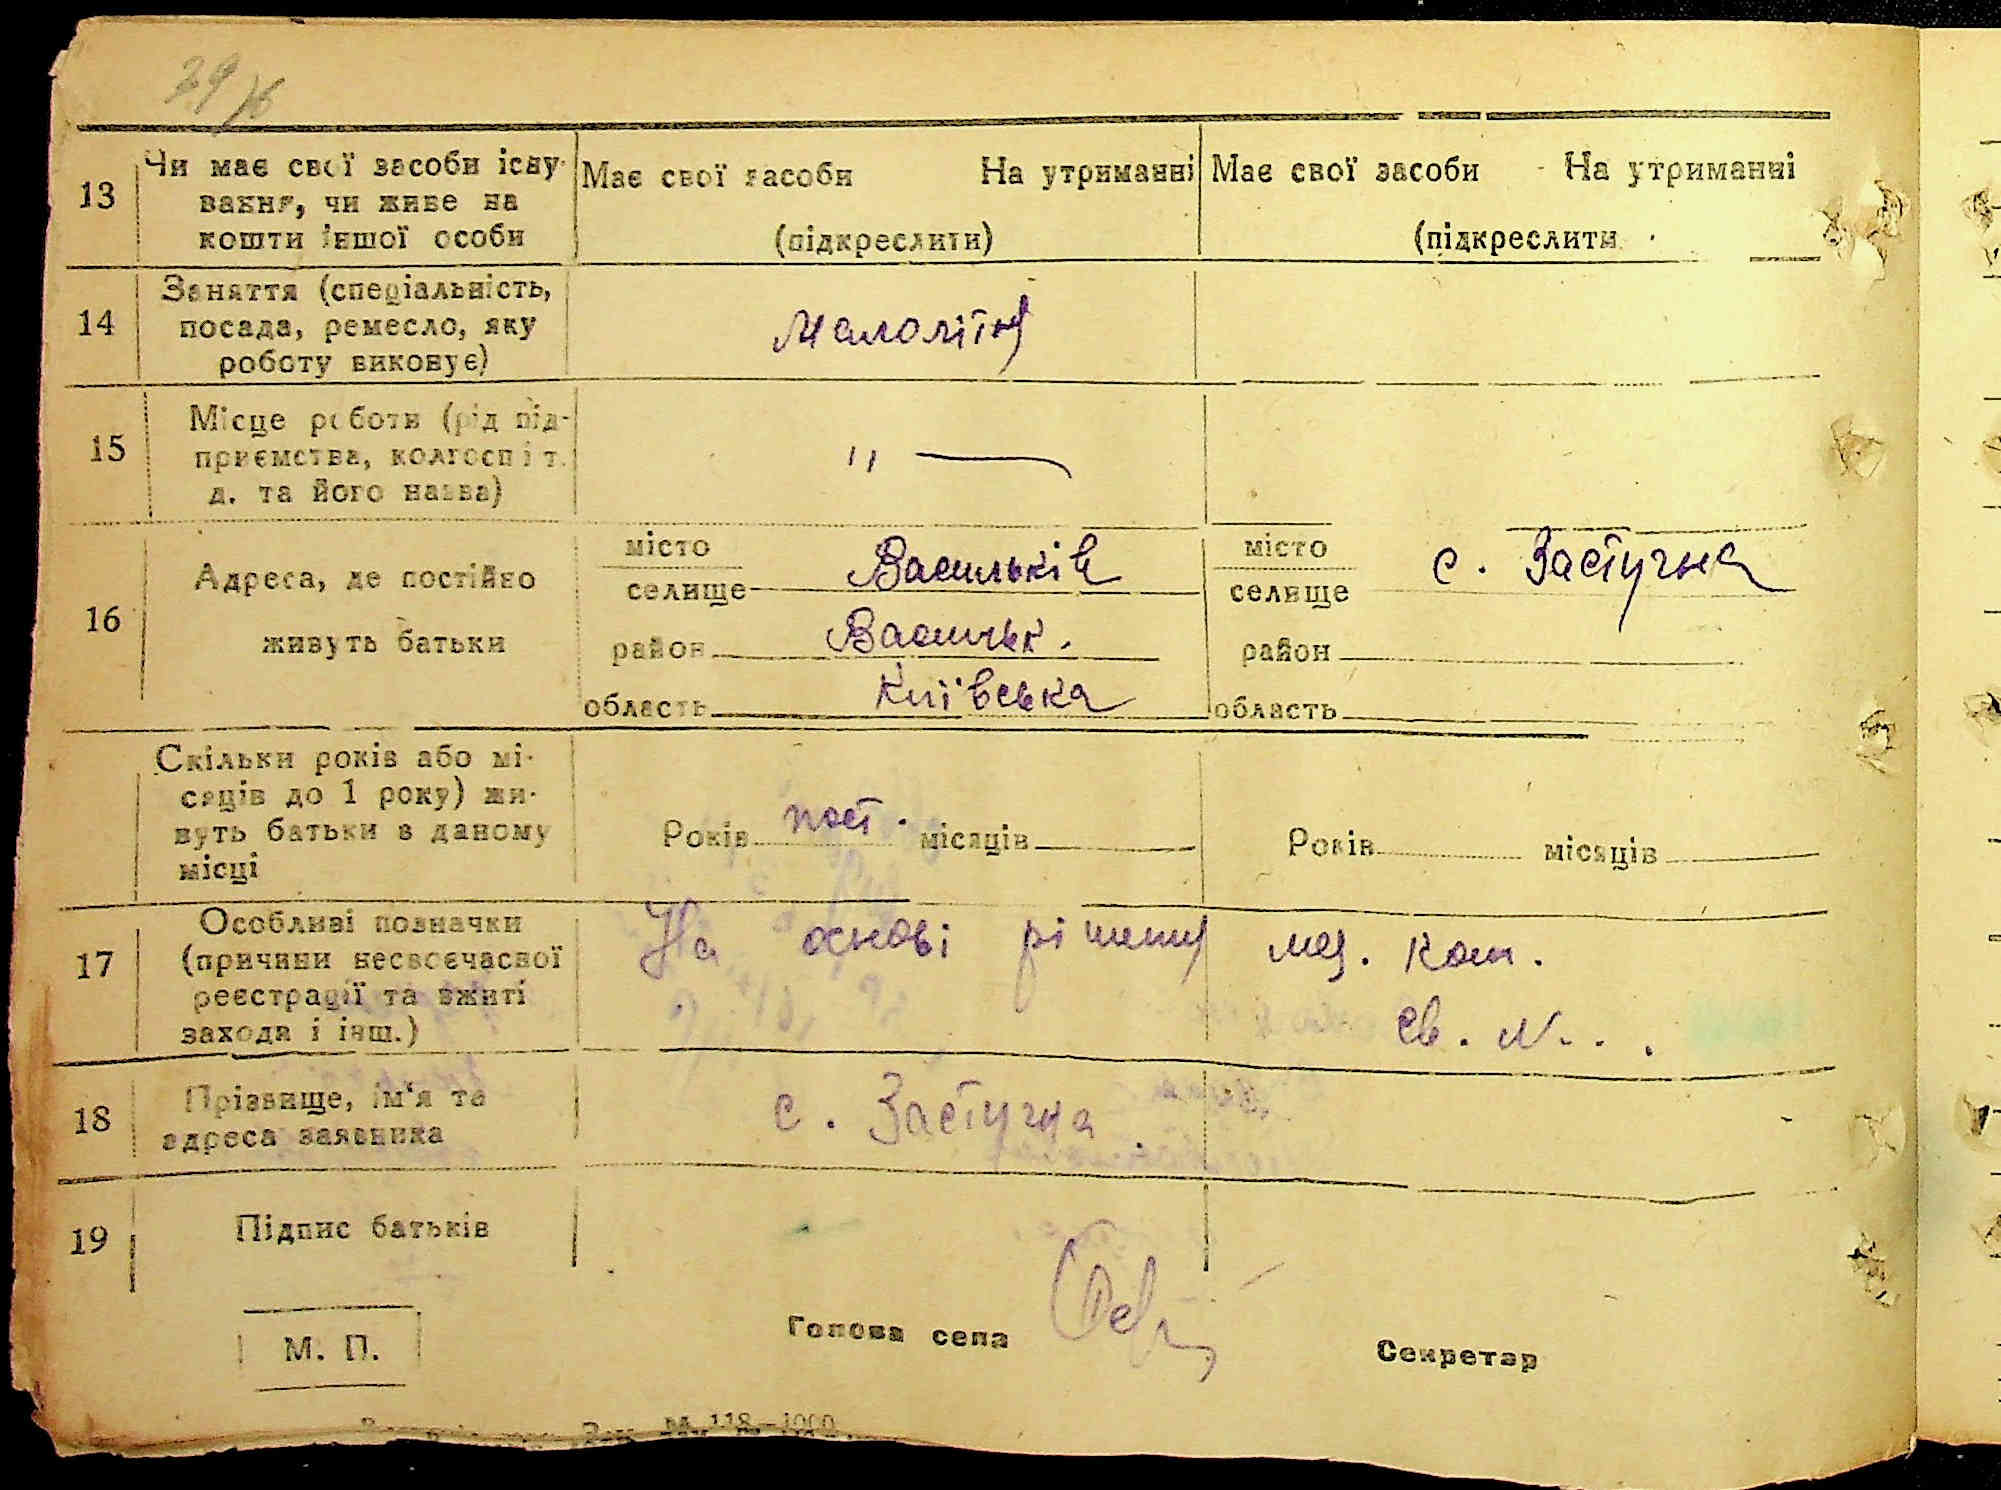 13 Чи має свої засоби існу- Має свої засоби На утриманні Має свої засоби На утриманні
вання, чи живе на
кошти іншої особи (підкреслити) (підкреслити
14 Заняття (спеціальність,
посада, ремесло, яку Малолітня
роботу виконує)
15 Місце роботи (рід під-
приємства, колгосп і т. " —
д. та його назва)
16 Адреса, де постійно місто Васильків місто с. Застугна
селище селище
живуть батьки район Васильк. район
область Київська область
Скільки років або мі-
сяців до 1 року) жи-
вуть батьки в даному Років пост. місяців Років місяців
місці
17 Особливі позначки На основі рішення мед. ком.
(причини несвоєчасної
реєстрації та вжиті Св. N . . .
заходи і інш.)
18 Прізвище, ім'я та с. Застугна.
адреса заявника
19 Підпис батьків
М. П. Голова села Секретар
118—1000